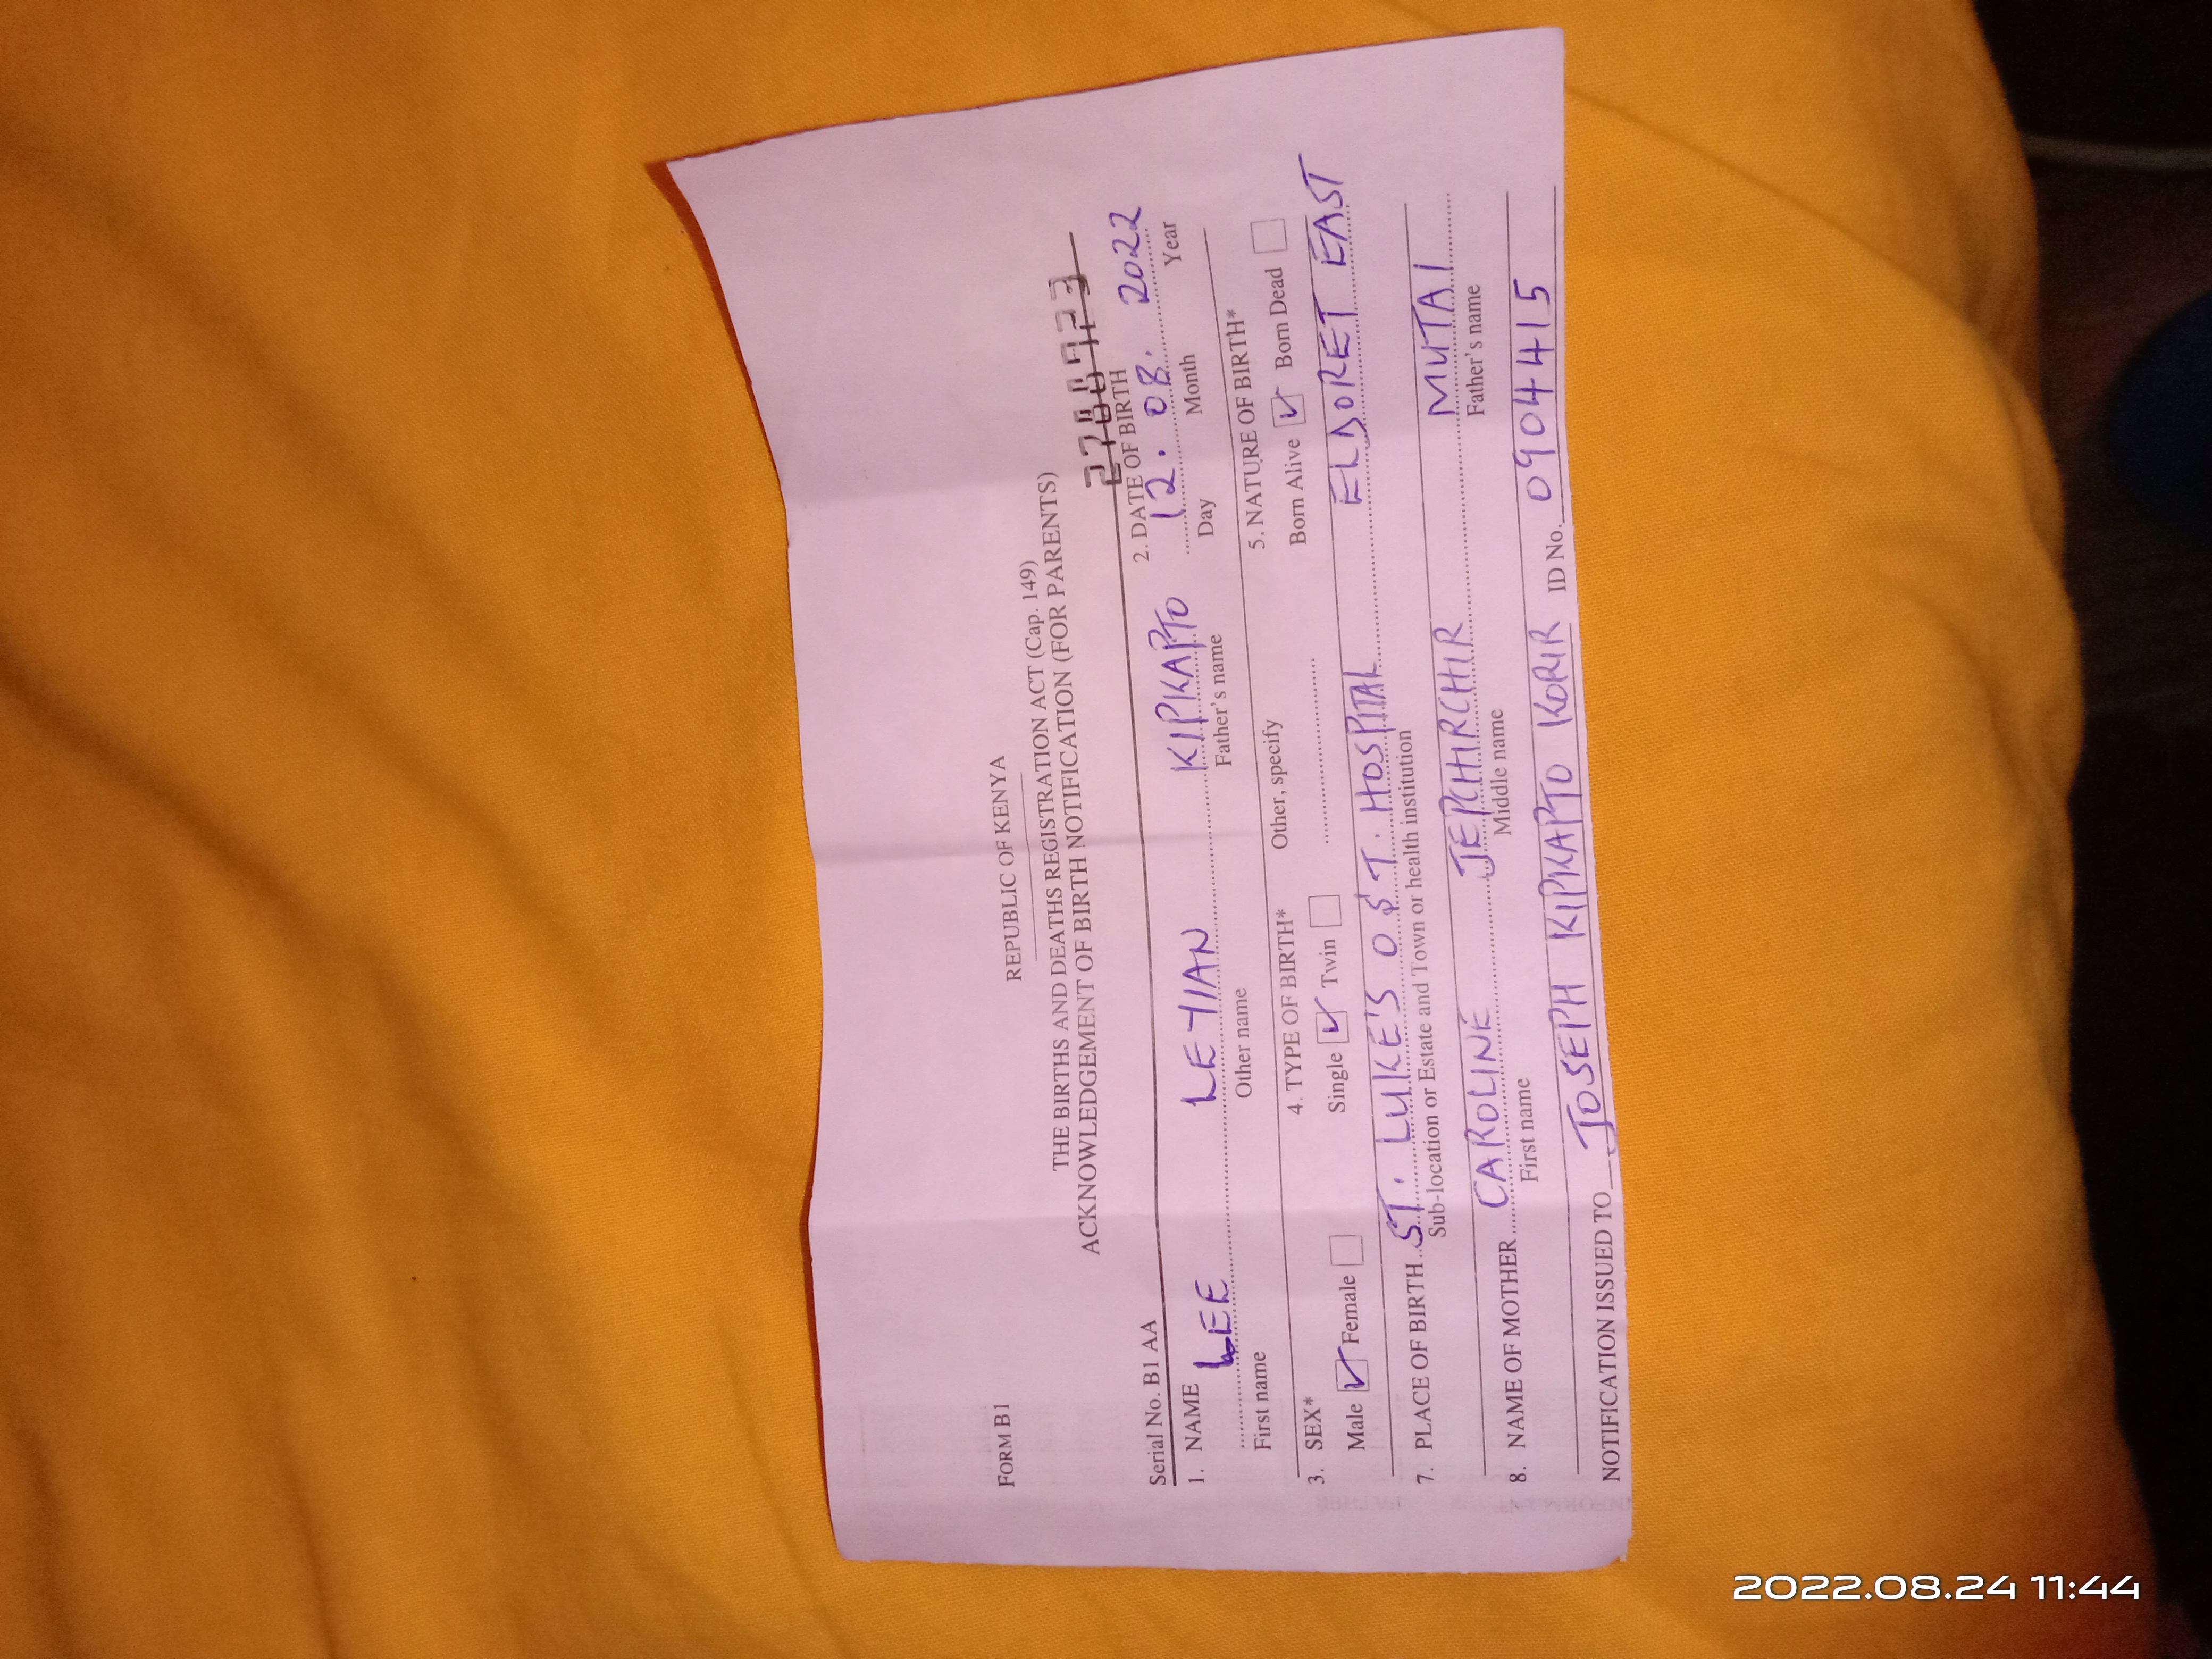 FORM B1
REPUBLIC OF KENYA
THE BIRTHS AND DEATHS REGISTRATION ACT (Cap. 149)
ACKNOWLEDGEMENT OF BIRTH NOTIFICATION (FOR PARENTS)
Serial No. B1 AA
1. NAME LEE LEYIAN KIPKAPTO
First name Other name Father's name
2. DATE OF BIRTH
12. 08. 2022
Day Month Year
3. SEX*
Male ✓ Female
4. TYPE OF BIRTH*
Single ✓ Twin
Other, specify
5. NATURE OF BIRTH*
Born Alive ✓ Born Dead
7. PLACE OF BIRTH ST. LUKE'S O & T. HOSPITAL ELDORET EAST
Sub-location or Estate and Town or health institution
8. NAME OF MOTHER CAROLINE JEPCHIRCHIR MUTAI
First name Middle name Father's name
NOTIFICATION ISSUED TO JOSEPH KIPKAPTO KORIR ID No. 0904415
2022.08.24 11:44